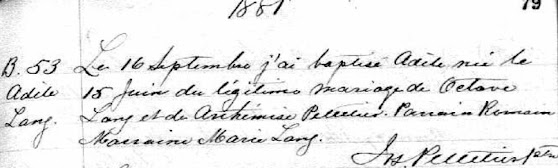 1881
79
B. 53 Le 16 Septembre j'ai baptisé Adile née le
Adile 15 Juin du légitime mariage de Octave
Lang. Lang et de Arthémise Pelletier. Parrain Romain
Marraine Marie Lang.
Jos Pelletier Ptre